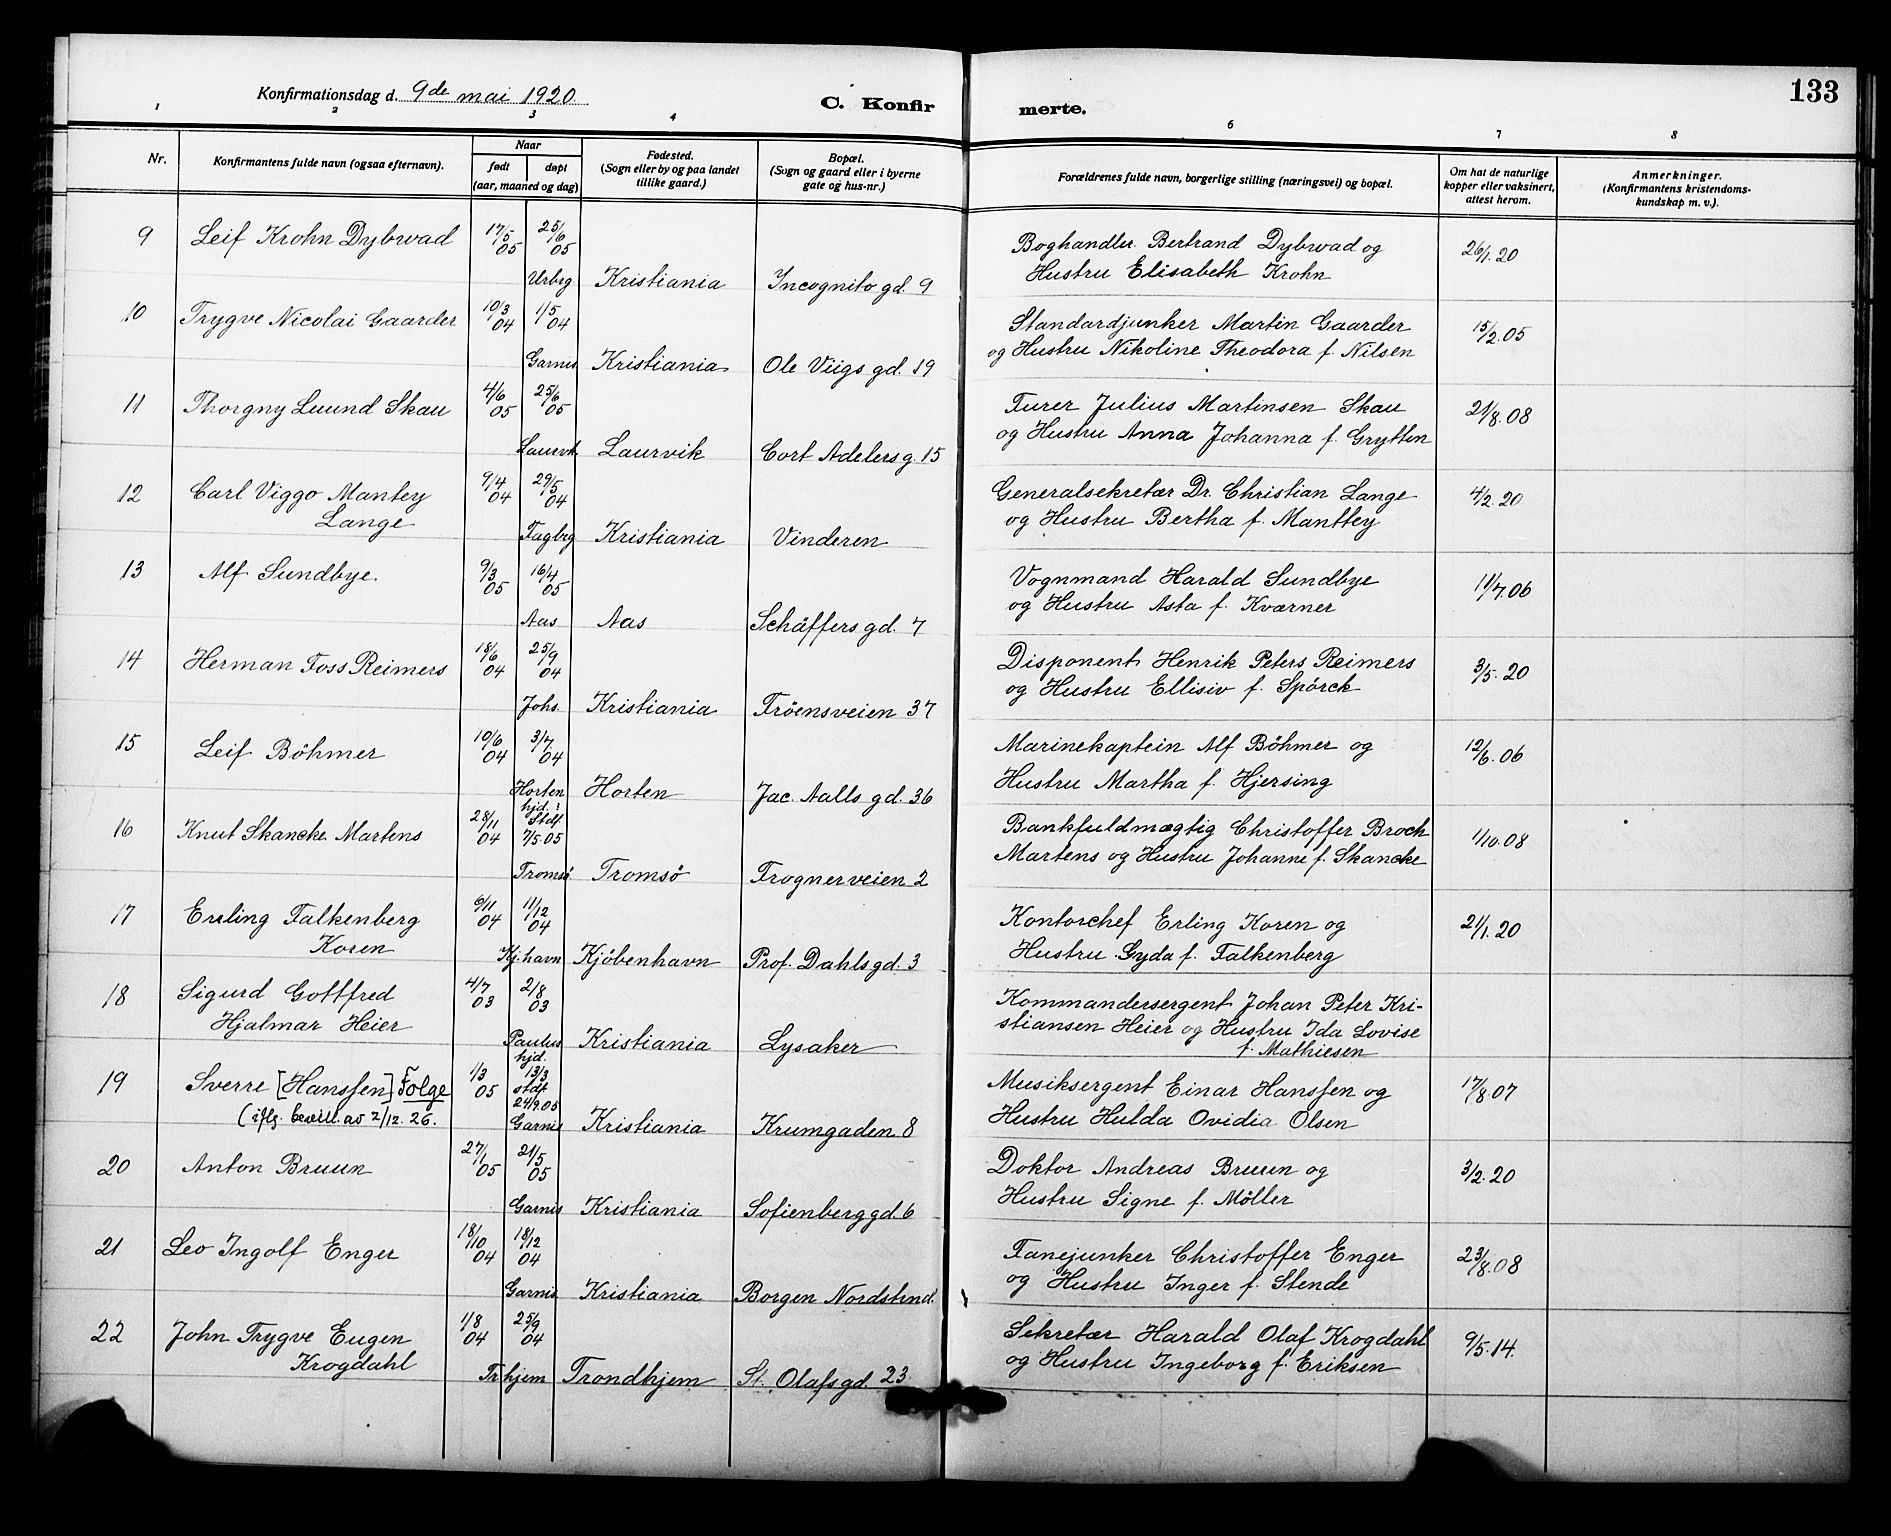 133
Konfirmationsdag d. 9de mai 1920.
C. Konfirmerte.
1 2 3 4 6 7 8
Nr.
Konfirmantens fulde navn (ogsaa efternavn).
Naar
født døpt
(aar, maaned og dag)
Fødested.
(Sogn eller by og paa landet
tillike gaard.)
Bopæl.
(Sogn og gaard eller i byerne
gate og hus-nr.)
Forældrenes fulde navn, borgerlige stilling (næringsvei) og bopæl.
Om hat de naturlige
kopper eller vaksinert,
attest herom.
Anmerkninger.
(Konfirmantens kristendoms-
kundskap m. v.).
9 Leif Krohn Dybwad 17/5 05 25/6 05 Boghandler Bertrand Dybwad og 26/1.20
Urbrg Kristiania Incognito gd. 9 Hustru Elisabeth Krohn
10 Trygve Nicolai Gaarder 10/3 04 1/5 04 Standardjunker Martin Gaarder 15/2.05
Garnis Kristiania Ole Viigs gd. 19 og Hustru Nikoline Theodora f. Nilsen
11 Thorgny Luund Skau 4/6 05 25/6 05 Furer Julius Martinsen Skau 21/8.08
Laurvk. Laurvik Cort Adelers g. 15 og Hustru Anna Johanna f. Grytten
12 Carl Viggo Mantey 9/4 04 29/5 04 Generalsekretær Dr. Christian Lange 4/2.20
Lange Fagbrg Kristiania Vinderen og Hustru Bertha f. Manttey
13 Alf Sundbye. 9/3 05 16/4 05 Vognmand Harald Sundbye 11/7.06
Aas Aas Schäffers gd. 7 og Hustru Asta f. Kværner
14 Herman Foss Reimers 18/6 04 25/9 04 Disponent Henrik Peters Reimers 3/5.20
Johs. Kristiania Fröensveien 37 og Hustru Ellisiv f. Spörck
15 Leif Böhmer 10/6 04 3/7 04 Marinekaptein Alf Böhmer og 12/6.06
Horten Horten Jac. Aalls gd. 36 Hustru Martha f. Hjersing
16 Knut Skancke Martens 28/11 04 hjd. Stdf 7/5.05 Bankfuldmægtig Christoffer Broch 1/10.08
Tromsö Tromsö Frognerveien 2 Martens og Hustru Johanne f. Skancke
17 Erling Falkenberg 9/11 04 11/12 04 Kontorchef Erling Koren og 21/1.20
Koren Kj.havn Kjöbenhavn Prof. Dahls gd. 3 Hustru Gyda f. Falkenberg
18 Sigurd Gottfred 4/7 03 2/8 03 Kommandersergent Johan Peter Kri-
Hjalmar Heier stiansen Heier og Hustru Ida Lovise
Paulus Kristiania Lysaker f. Mathiesen
19 Sverre [Hanssen] Folge 1/3 05 hjd. 13/3 stdf 24/9.05 Musiksergent Einar Hanssen og 17/8.07
(iflg. bevill. av 2/12.26. Garnis Kristiania Krumgaden 8 Hustru Hulda Ovidia Olsen
20 Anton Bruun 27/1 05 21/5 05 Doktor Andreas Bruun og 3/2.20
Garnis Kristiania Sofienberggd. 6 Hustru Signe f. Möller
21 Leo Ingolf Enger 18/10 04 18/12 04 Fanejunker Christoffer Enger 23/8.08
Garnis. Kristiania Borgen Nordstrnd. og Hustru Inger f. Stende
22 John Trygve Eugen 1/8 04 25/9 04 Sekretær Harald Olaf Krogdahl 9/5.14.
Krogdahl Trhjem Trondhjem St. Olafs gd. 23 og Hustru Ingeborg f. Eriksen